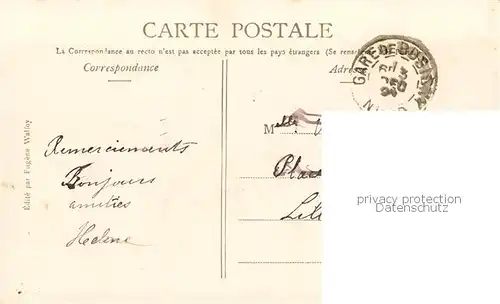 CARTE POSTALE
La Correspondance au recto n'est pas acceptée par tous les pays étrangers (Se ren
Correspondance
Adre
GARE DE
Mlle
Plac
Remerciements
Bonjours
amitiés
Helene
Édité par Eugène
privacy protection
Datenschutz